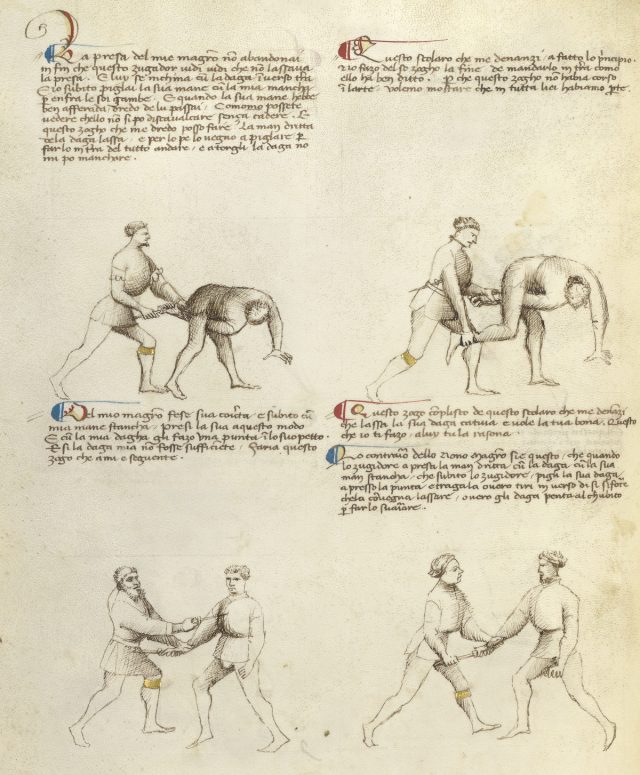 La presa del mio magistro non abandonai
in fin che questo zugador vidi vidi che non lassava
la presa. E luy se inchina cum la daga inverso terra
E io subito piglai la sua mane cum la mia mancha
per enfra le soi gambe. E quando la sua mane hebbe
ben afferada dredo de luy passai. Como possete
vedere chello non si po discavalcare senza cadere. E
questo zogho che me dredo posso fare. La man dritta
de la daga lassa, e per lo pe lo vegno a piglare per
farlo in terra del tutto andare, e a torgli la daga no
mi po manchare.
Questo scolaro che me denanzi, a fatto lo principio.
e io fazo del so zogho la fine de mandarlo in terra como
ello ha ben ditto. Per che questo zogho non habia corso
in larte, volemo mostrare che in tutta liei habiamo parte.
Del mio magistro fese sua coverta, e subito cum
mia mane stancha, presi la sua a questo modo
E cum la mia dagha gli fazo una punta in lo suo petto.
E si la daga mia non fosse sufficiente, faria questo
zogo che a mi e seguente.
Questo zogo complisto de questo scolaro che me denanzi
che lassa la sua daga cativa e vole la tua bona. Questo
che io ti fazo, a luy tu la rasona.
Lo contrario dello Nono magistro sie questo, che quando
lo zugidore a presa la man dritta cum la daga cum la sua
man stancha, che subito lo zugidore, pigli la sua daga
apresso la punta, e tragala overo tiri in verso di si si forte
chela convegna lassare, overo gli daga penta al chubito
per farlo svariare.